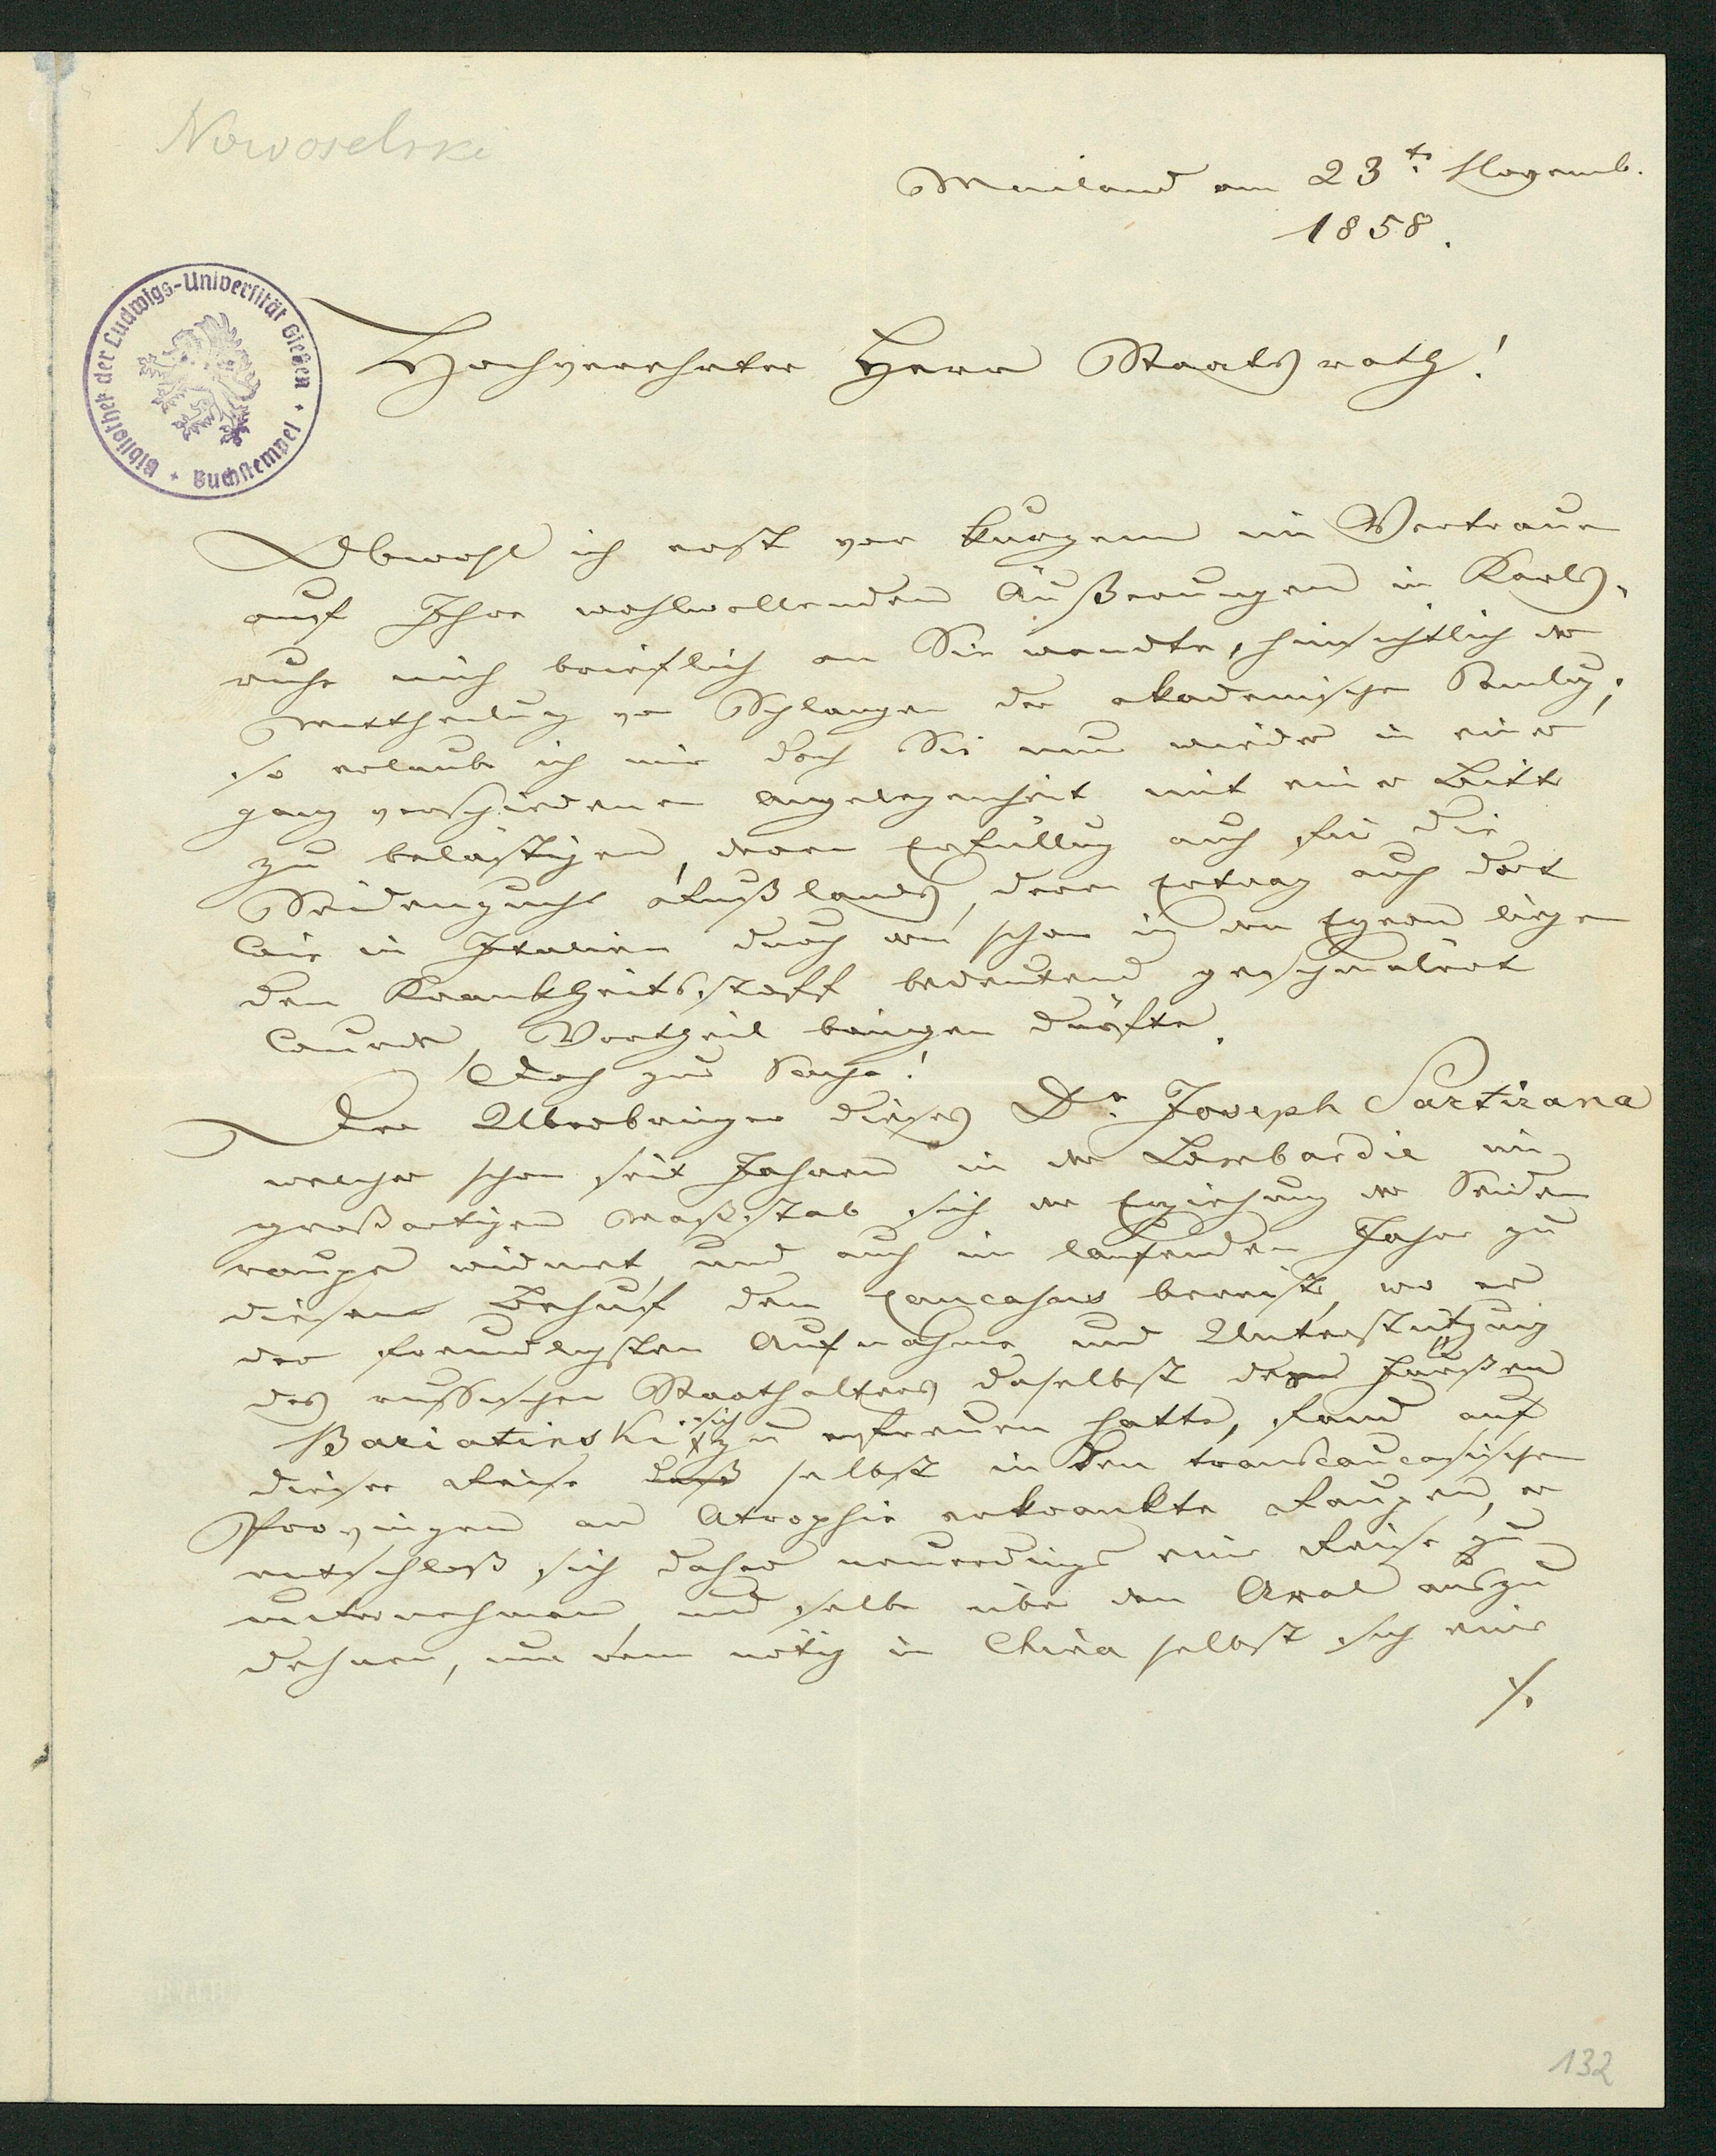 Nowoselski
Mailand am 23t. Novemb.
1858.
Bibliothek der Ludwigs-Universität Gießen
Buchstempel
Hochverehrter Herr Staatsrath!
Obwohl ich erst vor kurzem im Vertrauen
auf Ihre wohlwollenden Äußerungen in Karls-
ruhe mich brieflich an Sie wandte, hinsichtlich der
Mittheilung von Schlangen der akademischen Samlg;
so erlaube ich mir doch Sie nun wieder in einer
ganz verschiedenen Angelegenheit mit einer Bitte
zu belästigen, deren Erfüllung auch für die
Seidenzucht Rußlands, deren Ertrag auch dort
wie in Italien durch den schon in den Eyern liegen
den Krankheitsstoff bedeutend geschmälert
wurde, Vortheil bringen dürfte.
Doch zur Sache!
Der Überbringer dieses Dr. Joseph Sartirana
welcher schon seit Jahren in der Lombardie im
großartigen Maßstab sich der Erziehung der Seiden
raupe widmet und auch im laufenden Jahre zu
diesem Behuf den Caucasus bereiste, wo er
der freundlichsten Aufnahme und Unterstützung
des russischen Staathalters daselbst dem Fürsten
Bariatinski sich zu erfreuen hatte, fand auf
dieser Reise daß selbst in den transcaucasischen
Provinzen an Atrophie erkrankte Raupen, er
entschloß sich daher neuerdings eine Reise zu
unternehmen, und selbe über den Aral auszu
dehnen, um wenn nötig in China selbst sich eine
./.
132